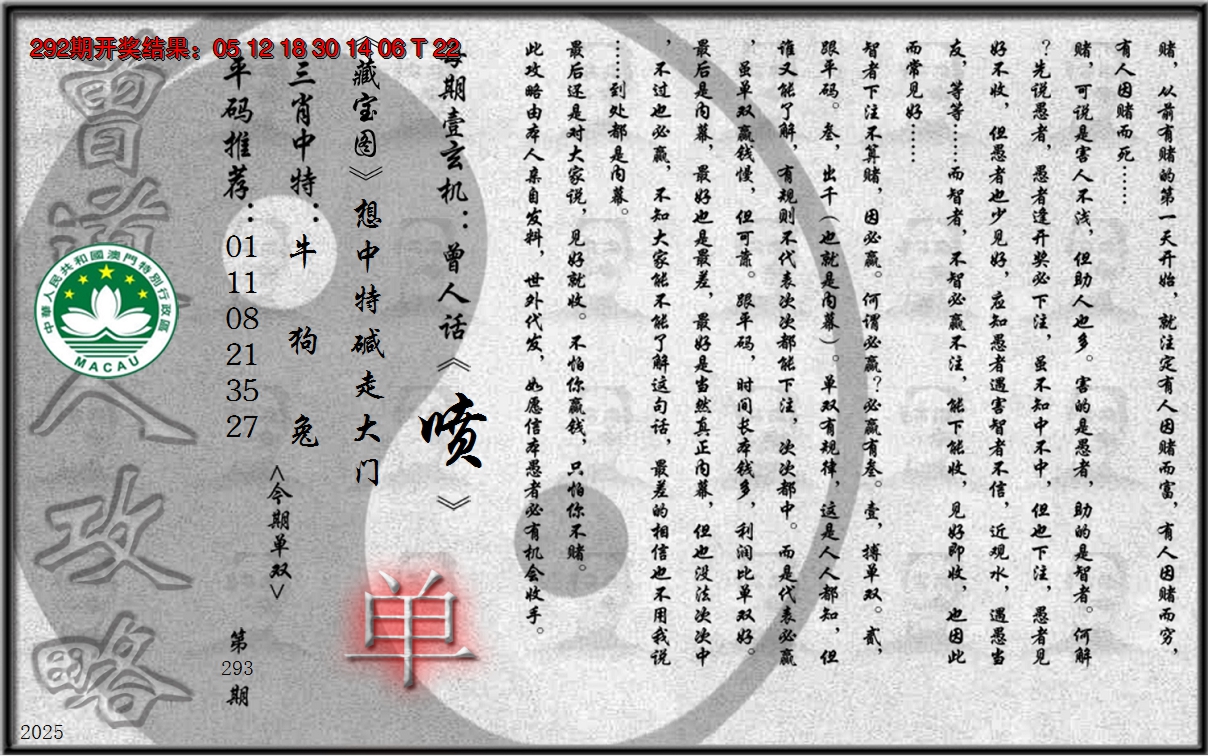 292期开奖结果：05 12 18 30 14 06 T 22
赌，从前有赌的第一天开始，就注定有人因赌而富，有人因赌而穷，
有人因赌而死……
赌，可说是害人不浅，但助人也多。害的是愚者，助的是智者。何解
？先说愚者，愚者逢开奖必下注，虽不知中不中，但也下注，愚者见
好不收，但愚者也少见好，应知愚者遇害智者不信，近观水，遇愚当
友，等等……而智者，不智必赢不注，能下能收，见好即收，也因此
而常见好……
智者下注不算赌，因必赢。何谓必赢？必赢有叁。壹，搏单双。贰，
跟平码。叁，出千（也就是内幕）。单双有规律，这是人人都知，但
谁又能了解，有规则不代表次次都能下注，次次都中。而是代表必赢
，虽单双赢钱慢，但可靠。跟平码，时间长本钱多，利润比单双好。
最后是内幕，最好也是最差，最好是当然真正内幕，但也没法次次中
，不过也必赢，不知大家能不能了解这句话，最差的相信也不用我说
……到处都是内幕。
最后还是对大家说，见好就收。不怕你赢钱，只怕你不赌。
此攻略由本人亲自发料，世外代发，如愿信本愚者必有机会收手。
每期壹玄机：曾人话《喷》
《藏宝图》想中特碱走大门
三肖中特：牛 狗 兔
平码推荐：01 11 08 21 35 27
<今期单双>
单
第293期
曾道人攻略
中華人民共和國澳門特別行政區
MACAU
2025